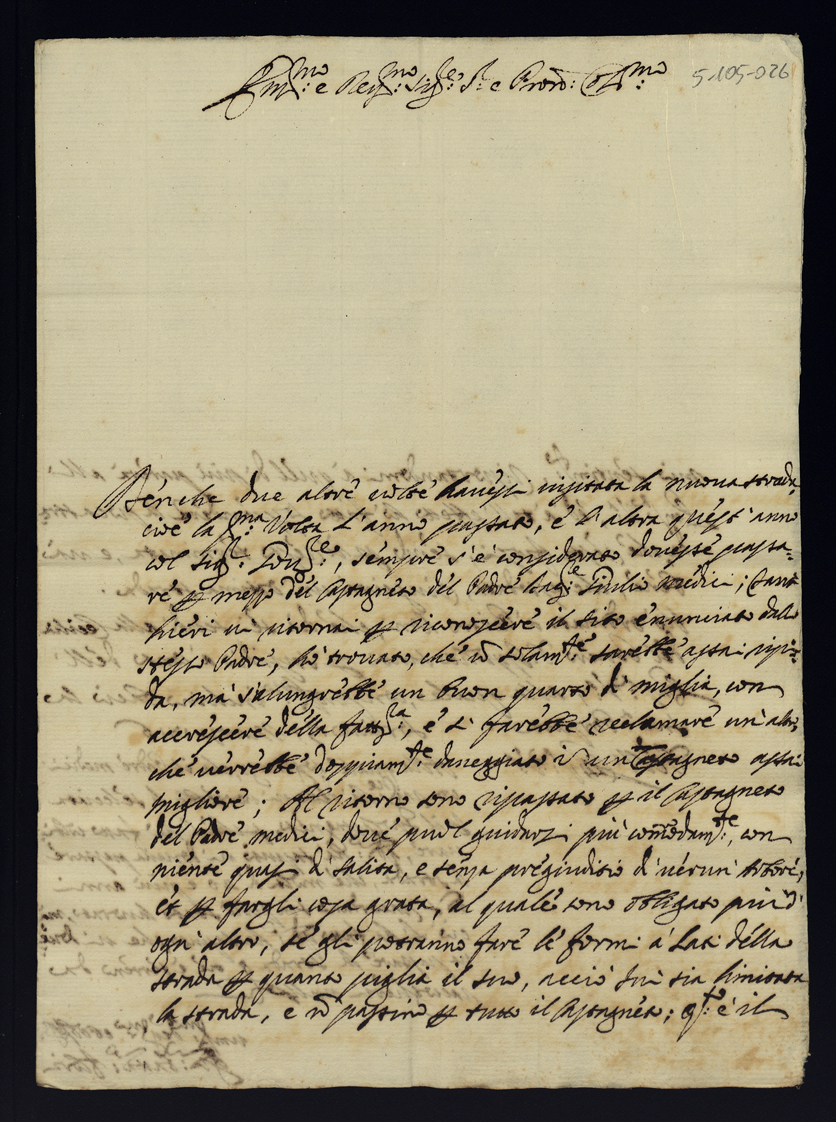 Em:mo e Re:mo Sig:re S:r e Pron: Col:mo
5-105-026
Benche due altre volte havessi visitata la nuova strada,
cioè la p:ma volta l'anno passato, e l'altra quest'anno
col Sig:r , sempre s'è considerato dovesse passa=
re p mezzo del Castagneto del Padre Giulio Medici;
hieri vi ritornai p riconoscere il sito enunciato dallo
stesso Padre, hò trovato, che nõ solam:te sarebbe assai ripi=
da, mà s'alungarebbe un buon quarto di miglia, con
accrescere della , e si farebbe reclamare un altro,
che verrebbe doppiam:te daneggiato in un Castagneto assai
migliore; Al ritorno sono ripassato p il Castagneto
del Padre Medici, dove puol guidarsi più comodam:te, con
niente quasi di salita, e senza pregiuditio di verun arbore,
et p fargli cosa grata, al quale sono obligato più d'
ogni altro, se gli potranno fare le fermi à lati della
strada p quanto piglia il suo, acciò sui sia limitata
la strada, e nõ passino p tutto il Castagneto; q:to è il